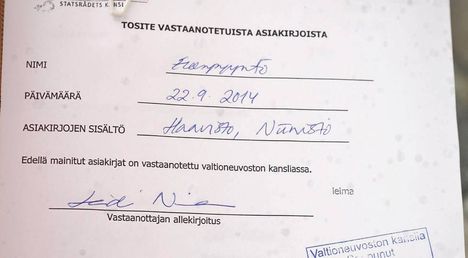 STATSRÅDETS K NSI
TOSITE VASTAANOTETUISTA ASIAKIRJOISTA
NIMI Eronpyyntö
PÄIVÄMÄÄRÄ 22.9.2014
ASIAKIRJOJEN SISÄLTÖ Haavisto, Niinistö
Edellä mainitut asiakirjat on vastaanotettu valtioneuvoston kansliassa.
leima
Vastaanottajan allekirjoitus
Valtioneuvoston kanslia